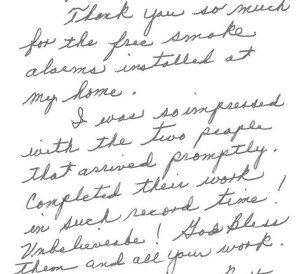 Thank you so much
for the free smoke
alarms installed at
my home.
I was so impressed
with the two people
that arrived promptly.
Completed their work
in such record time!
Unbelievable! God Bless
them and all your work.